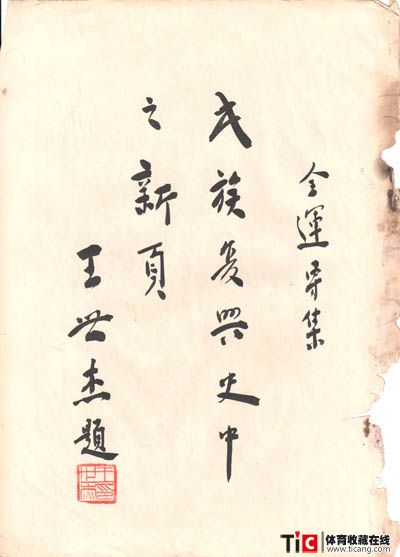 全運專集
民族复興史中
之新頁
王世杰題
TiC 体育收藏在线
www.ticang.com